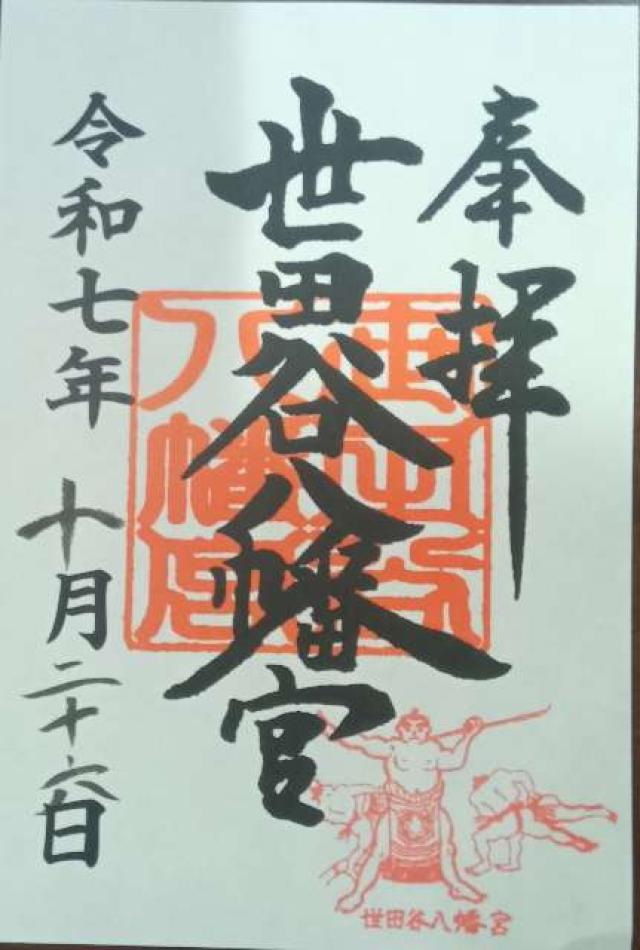 奉拝
世田谷八幡宮
令和七年 十月二十六日
世田谷八幡宮
世田谷八幡宮